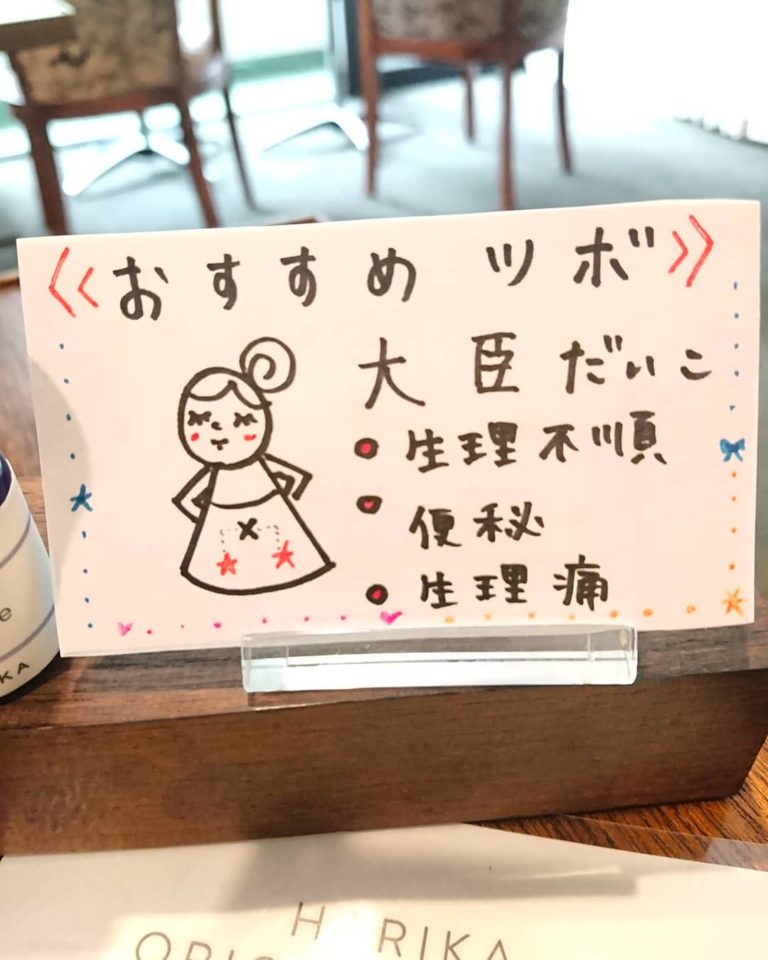 《おすすめツボ》
大臣 だいこ
生理不順
便秘
生理痛
e
KA
H RIKA